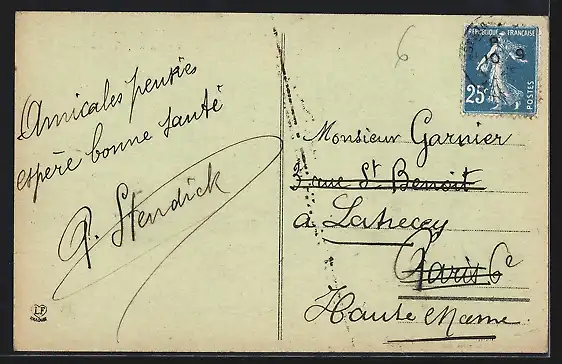 Amicales pensées
espère bonne santé
P. Stendick
6
REPUBLIQUE FRANÇAISE
25c
POSTES
Monsieur Garnier
3, rue St Benoit
à Latrecey
Paris 6e
Haute Marne
LF